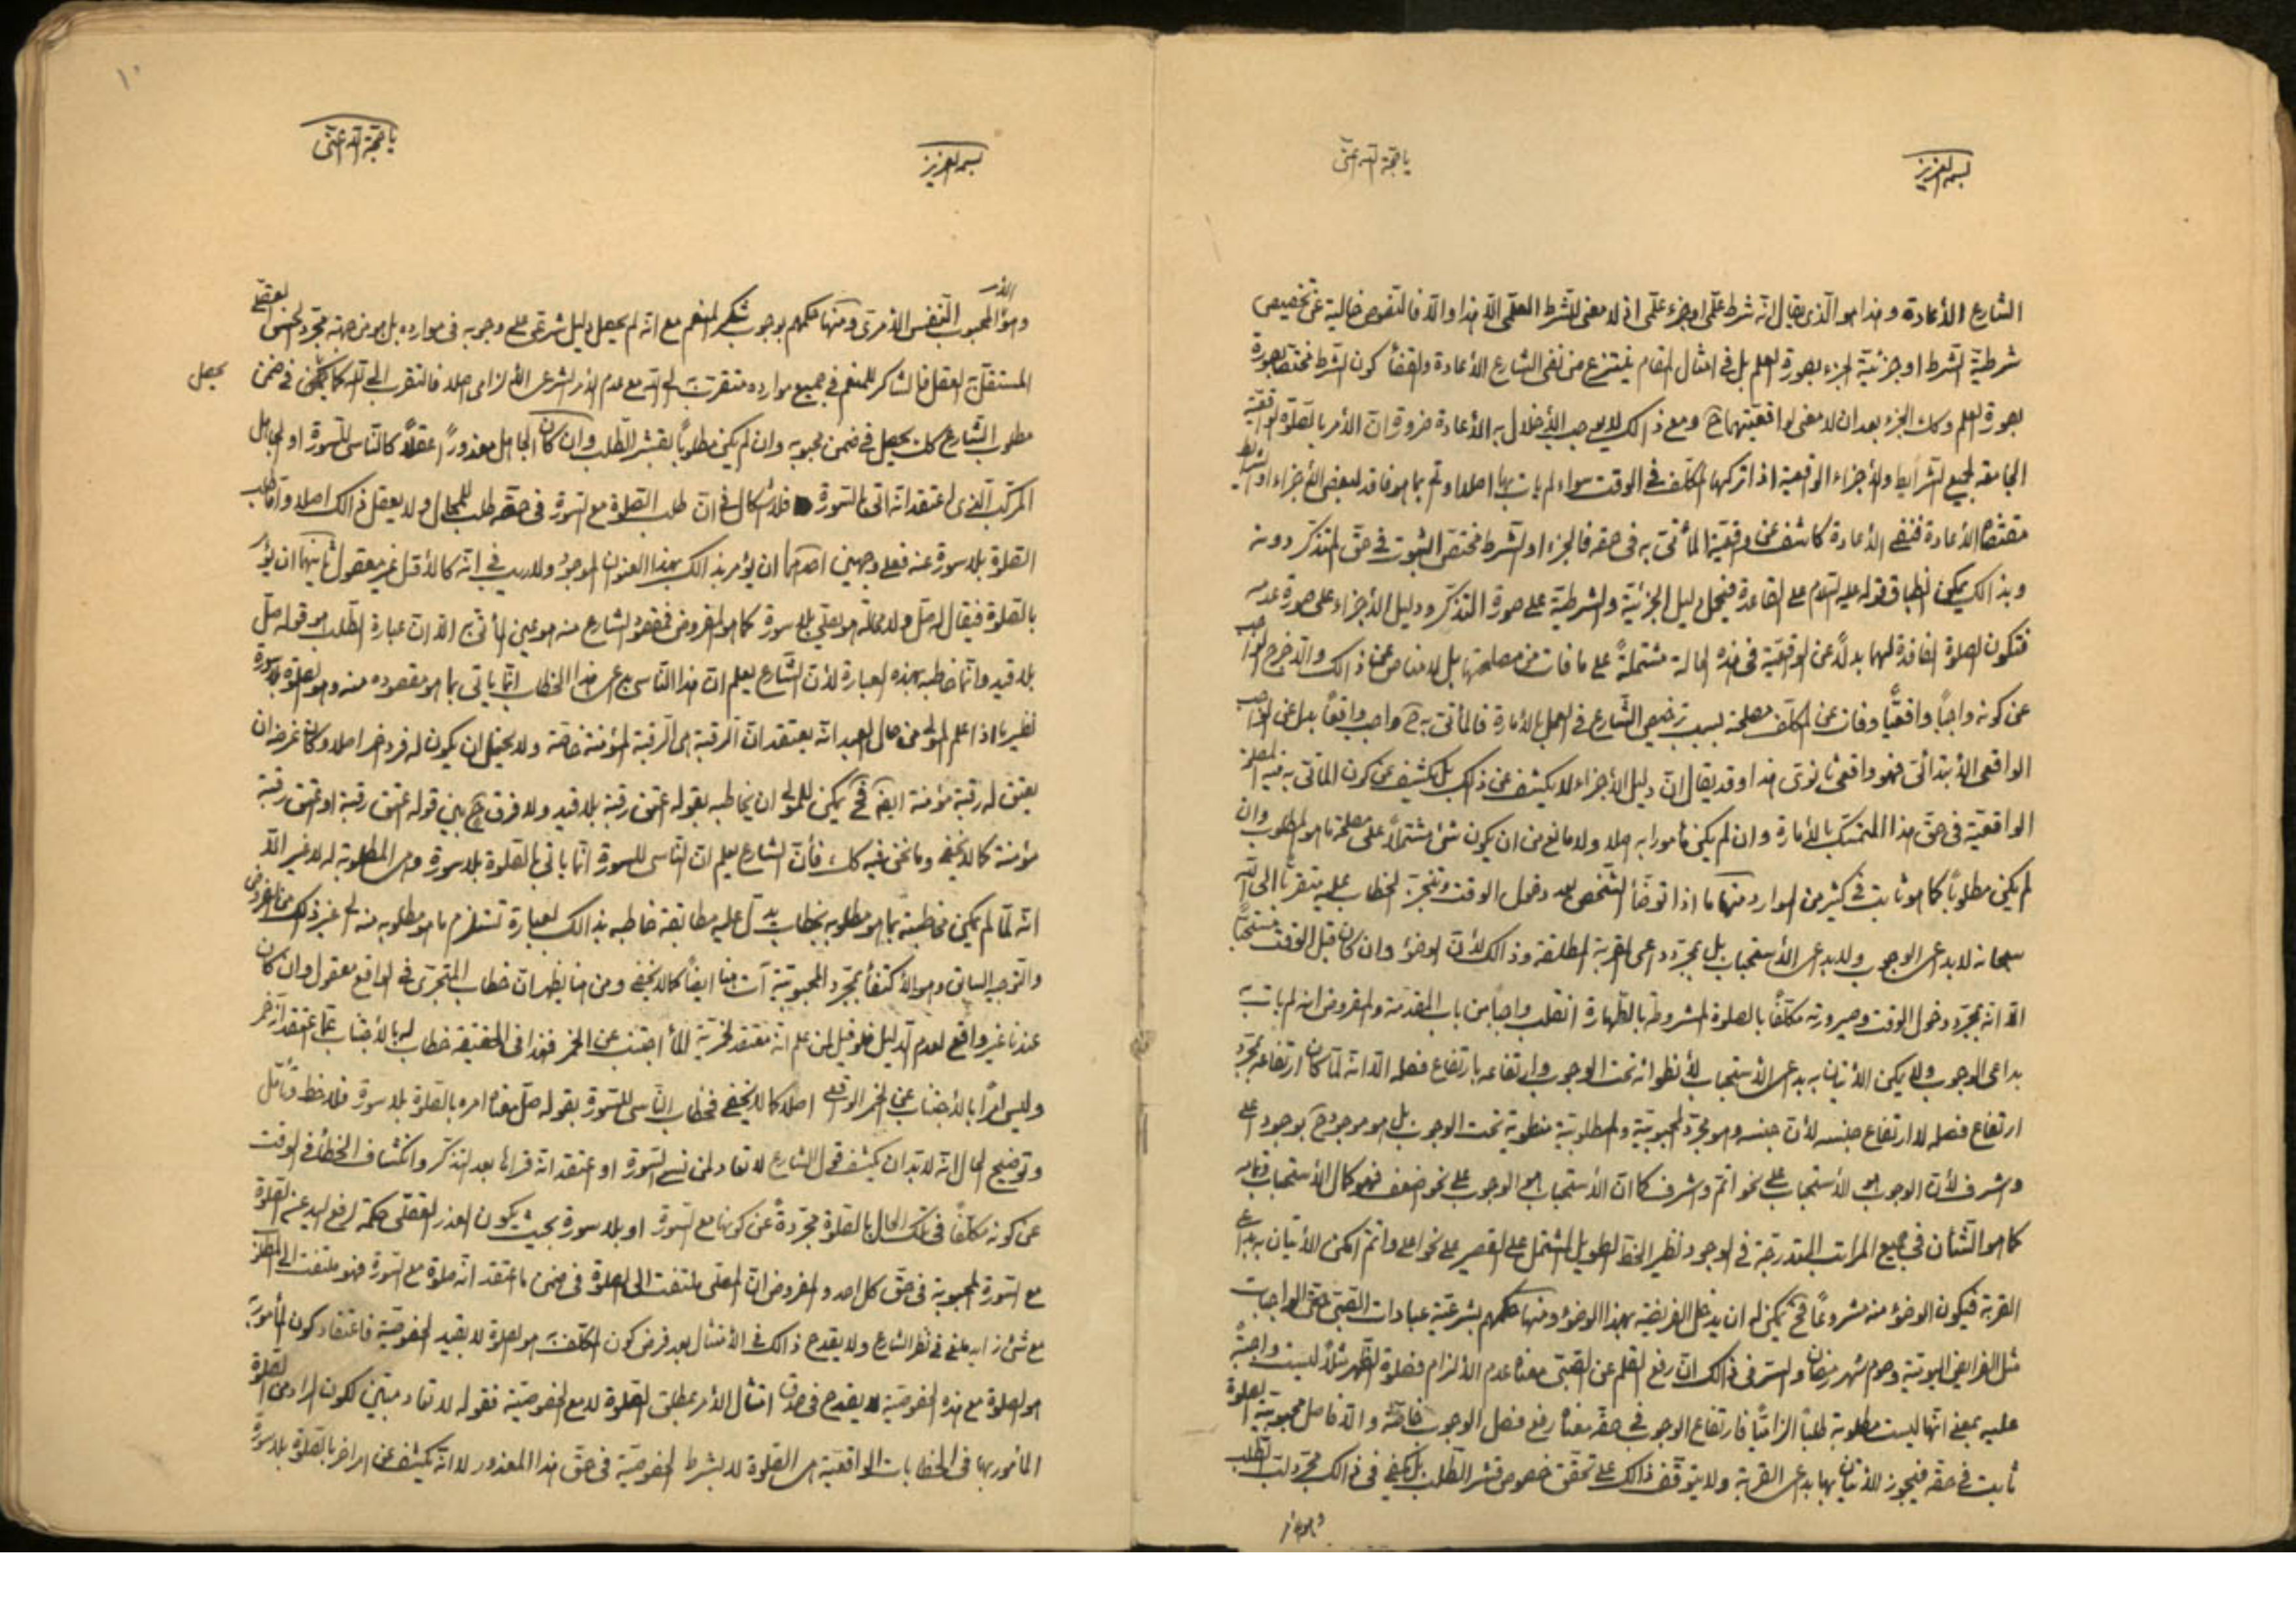 بسمه العزيز
يا حجة الله اغثنى
الشارع الأعادة وهذا هو الذى يقال انه شرط علمى او جزء علمى اذ لا معنى للشرط العلمى الا هذا والا فالنصوص خالية عن تخصيص
شرطية الشرط او جزئية الجزء بصورة العلم بل فى امثال المقام ينتزع من نفى الشارع الأعادة والقضاء كون الشرط مختصا بصورة
بصورة العلم وكك الجزء بعد ان لا معنى لواقعيتهما ح ومع ذالك لا يوجب الأخلال به الأعادة ضرورة ان الأمر بالصلوة الواقعية
الجامعة لجميع الشرايط والأجزاء الواقعية اذا تركها المكلف فى الوقت سواء لم يات بها اصلا او تم بما هو فاقد لبعض الأجزاء او الشرايط
مقتضاه الأعادة فنفى الأعادة كاشف عن واقعية المأتى به فى حقه فالجزء او الشرط مختص الثبوت فى حق المتذكر دونه
وبذالك يمكن انطباق قوله عليه السلام على القاعدة فيحمل دليل الجزئية والشرطية على صورة التذكر ودليل الأجزاء على صورة عدمه
فتكون الصلوة الفاقدة لهما بدلاً عن الواقعية فى هذه الحالة مشتملةً على ما فات من مصلحتها بل لا مناص عن ذالك والا لخرج الواجب
عن كونه واجباً واقعيًّا وفات عن المكلف مصلحة بسبب ترخيص الشارع فى العمل بالأمارة فالمأتى به ح واجب واقعاً بدل عن الواجب
الواقعى الأبتدائى فهو واقعى ثانوى هذا وقد يقال ان دليل الأجزاء لا يكشف عن ذالك بل يكشف عن كون المأتى به فيه المصلحة
الواقعية فى حق هذا المتمسك بالأمارة وان لم يكن مأمورا به اصلا ولا مانع من ان يكون شئ مشتملاً على مصلحة ما هو المطلوب وان
لم يكن مطلوباً كما هو ثابت فى كثير من الموارد منها ما اذا توضأ الشخص بعد دخول الوقت وتنجز الخطاب عليه متقرباً الى الله
سبحانه لا بداعى الوجوب ولا بداعى الأستحباب بل بمجرد داعى القربة المطلقة وذالك لأن الوضوء وان كان قبل الوقت مستحباً
الا انه بمجرد دخول الوقت وصيرورته مكلفاً بالصلوة المشروطة بالطهارة انقلب واجباً من باب المقدمة والمفروض انه لم يات به
بداعى الوجوب ولا يمكن الأتيان به بداعى الأستحباب لأنطوائه تحت الوجوب وارتفاعه بارتفاع فصله الا انه لما كان ارتفاعه بمجرد
ارتفاع فصله لا ارتفاع جنسه لأن جنسه وهو مجرد المحبوبية والمطلوبية منطوية تحت الوجوب بل هو موجود ح بوجود اعلى
واشرف لأن الوجوب هو الأستحباب على نحو اتم واشرف كما ان الأستحباب هو الوجوب على نحو ضعف فهو كمال الأستحباب وتمامه
كما هو الشأن فى جميع المراتب المتدرجة فى الوجود نظير الخط الطويل المشتمل على القصير على نحو اعلى واتم امكن الأتيان به بداعى
القربة فيكون الوضوء منه مشروعاً فح يمكن له ان يدخل الفريضة بهذا الوضوء ومنها حكمهم بشرعية عبادات الصبى حتى الواجبات
مثل الفرايض اليومية وصوم شهر رمضان والسر فى ذالك ان رفع القلم عن الصبى معناه عدم الألزام فصلوة الظهر مثلاً ليست واجبةً
عليه بمعنى انها ليست مطلوبة طلباً الزامياً فارتفاع الوجوب فى حقه معناه رفع فصل الوجوب خاصة والا فاصل محبوبية الصلوة
ثابت فى حقه فيجوز الأتيان بها بداعى القربة ولا يتوقف ذالك على تحقق خصوص قشر الطلب بل يكفى فى ذالك مجرد لب الطلب
وهو الأمر
بسمه العزيز
يا حجة الله اغثنى
١٠
وهو المحبوب النفس الأمرى ومنها حكمهم بوجوب شكر المنعم مع انه لم يحصل دليل شرعى على وجوبه فى موارده بل هو من جهة مجرد الحسن العقلى
المستقل به العقل فالشاكر للمنعم فى جميع موارده متقرب الى الله مع عدم الأمر الشرعى الألزامى اصلا فالتقرب الى الله كما يمكن فى ضمن
يحصل
مطلوب الشارع كك يحصل فى ضمن محبوبه وان لم يكن مطلوباً بقشر الطلب وان كان الجاهل معذوراً عقلاً كالناسى للسورة او الجاهل
المركب الذى اعتقد انه اتى بالسورة فلا اشكال فى ان طلب الصلوة مع السورة فى حقه طلب للمحال ولا يعقل ذالك اصلا واما طلب
الصلوة بلا سورة عنه فعلى وجهين احدهما ان يؤمر بذالك بهذا العنوان الموجود ولا ريب فى انه كالأول غير معقول ثانيهما ان يؤمر
بالصلوة فيقال له صل ولا محالة هو يصلى بلا سورة كما هو المفروض فمقصود الشارع منه هو عين المأتى به الا ان عبارة الطلب هو قوله صل
بلا قيد وانما خاطبه بهذه العبارة لأن الشارع يعلم ان هذا الناسى مع هذا الخطاب انما ياتى بما هو مقصوده منه وهو الصلوة بلا سورة
نظير ما اذا علم المولى من حال العبد انه يعتقد ان الرقبة هى الرقبة المؤمنة خاصة ولا يحتمل ان يكون له فرد اخر اصلا وكان غرضه ان
يعتق له رقبة مؤمنة ايضا فح يمكن للمولى ان يخاطبه بقوله عتق رقبة بلا قيد ولا فرق ح بين قوله اعتق رقبة او اعتق رقبة
مؤمنة كما لا يخفى وما نحن فيه كك فأن الشارع يعلم ان الناسى للسورة انما ياتى بالصلوة بلا سورة وهى المطلوبة له لا غير الا
انه لما لم يمكن مخاطبته بما هو مطلوبه بخطاب يدل عليه مطابقة خاطبه بذالك لعبارة تستلزم ما هو مطلوبه منه
والتوجيه السابق وهو الأكتفاء بمجرد المحبوبية آت هنا ايضاً كما لا يخفى ومن هنا يظهر ان خطاب المتجرى فى الواقع معقول وان كان
عندنا غير واقع لعدم الدليل فلو قيل لمن علم انه معتقد لخمرية الماء اجتنب عن الخمر فهذا فى الحقيقة خطاب له بالأجتناب عما اعتقد انه خمر
وليس امراً بالأجتناب عن الخمر الواقعى اصلا كما لا يخفى فخطاب الناسى للسورة بقوله صل معناه امره بالصلوة بلا سورة فلاحظ وتأمل
وتوضيح الحال انه لا بد ان يكشف قول الشارع لا تعاد لمن نسى السورة او اعتقد انه قراها بعد التذكر وانكشاف الخطأ فى الوقت
عن كونه مكلفاً فى تلك الحال بالصلوة مجردةً عن كونها مع السورة او بلا سورة بحيث يكون العذر العقلى حكمه لرفع اليد عن الصلوة
مع السورة المحبوبة فى حق كل احد والمفروض ان المصلى ملتفت الى الصلوة فى ضمن ما اعتقد انه صلوة مع السورة فهو ملتفت الى المطلوب
مع شئ زايد ملغى فى نظر الشارع ولا يقدح ذالك فى الأمتثال بعد فرض كون المكلف به هو الصلوة لا بقيد الخصوصية فاعتقاد كون المأمور به
هو الصلوة مع هذه الخصوصية لا يقدح فى صدق امتثال الأمر بمطلق الصلوة لا مع الخصوصية فقوله لا تعاد مبين لكون المراد من الصلوة
المأمور بها فى الخطابات الواقعية هى الصلوة لا بشرط الخصوصية فى حق هذا المعذور لا انه يكشف عن امر اخر بالصلوة بلا سورة